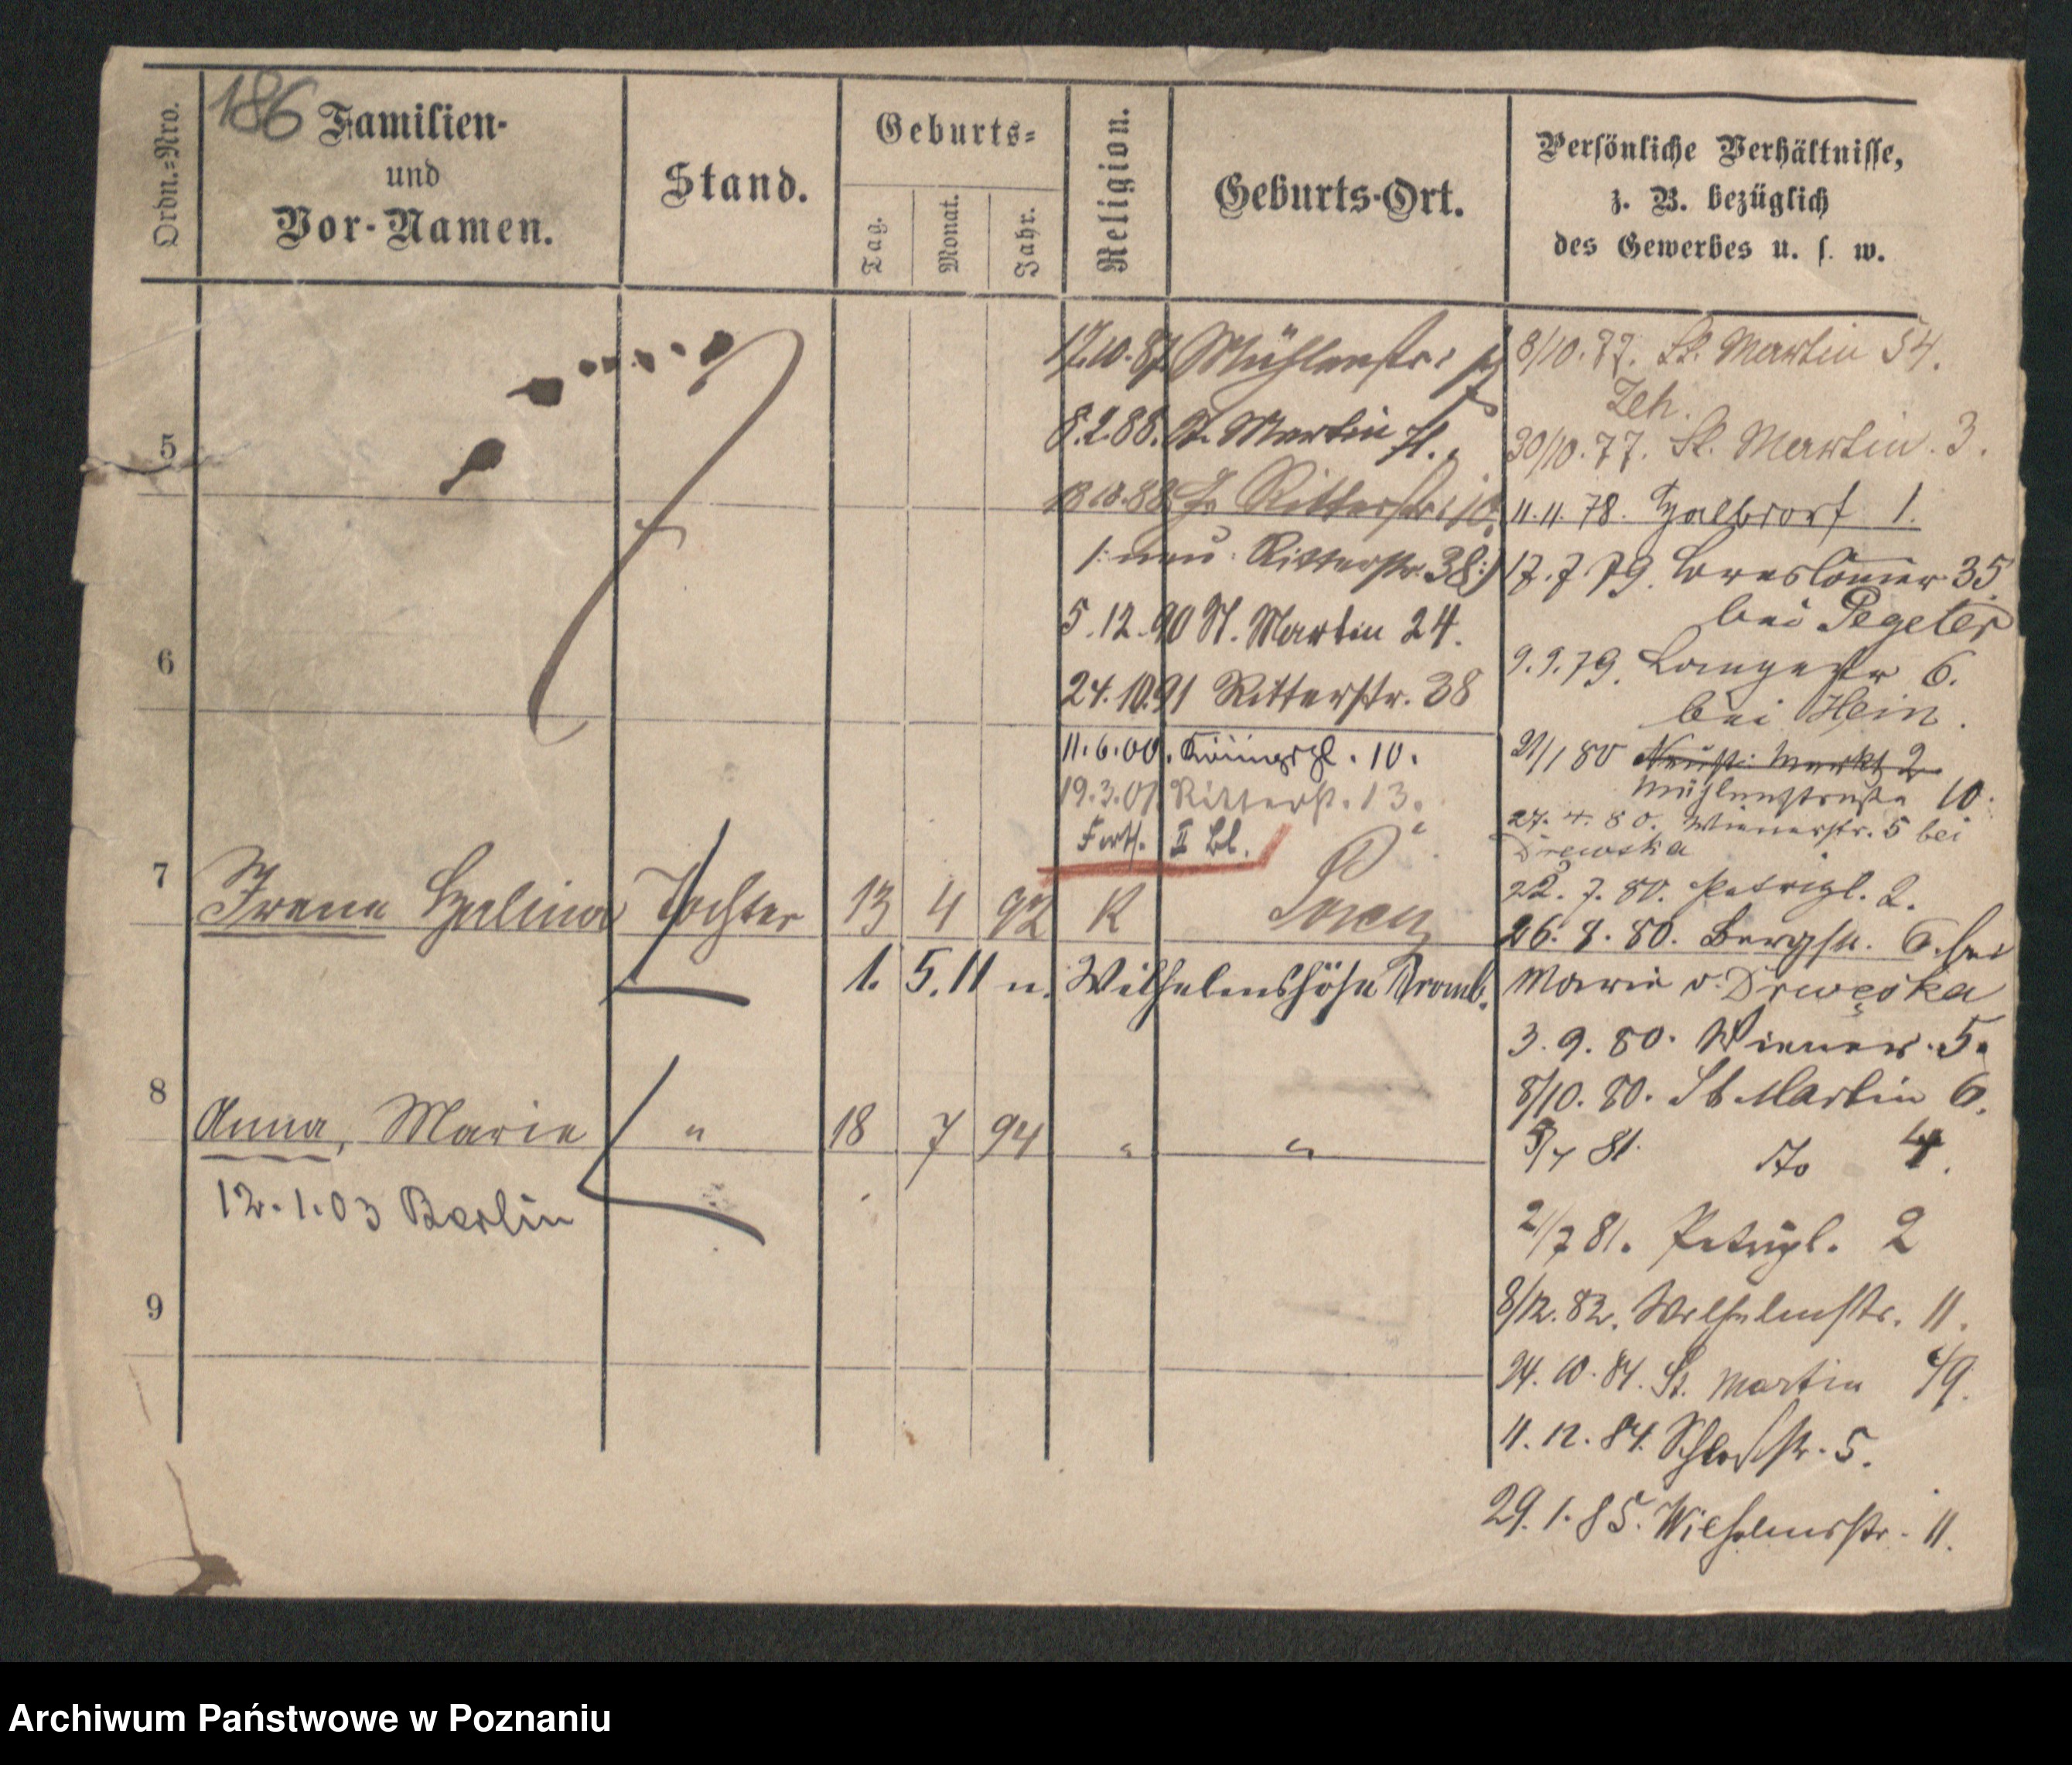 186
Ordn.=Nro.
Familien-
und
Vor-Namen.
Stand.
Geburts=
Tag.
Monat.
Jahr.
Religion.
Geburts-Ort.
Persönliche Verhältnisse,
z. B. bezüglich
des Gewerbes u. s. w.
17.10.87. Mühlenstr.
8.2.88. St. Martin
18.10.88 Gr Ritterstr. 10.
/: neu Ritterstr. 38 :/
5.12.90 St. Martin 24.
24.10.91 Ritterstr. 38
11.6.00. Königspl. 10.
19.3.01. Ritterst. 13.
Forts. II Bl.
5
6
7
Irena Halina Tochter 13 4 92 K Posen
1. 5. 11 n. Wilhelmshöhe Bromb.
8
Anna, Marie " 18 7 94 " "
12.1.03 Berlin
9
8/10.77. St. Martin 54.
Zeh.
30/10.77. St. Martin. 3.
11.11.78. Halbdorf 1.
17.7 79. Breslauer 35
bei Pegeler
9.9.79. Langestr 6.
bei Hein.
21/1 80 Neust. Markt 2
Mühlenstrasse 10.
27.4.80. Wienerstr. 5 bei
Drewska
22.7.80. Petripl. 2.
26.8.80. Bergstr. 6. bei
Marie v. Drwęska
3.9.80. Wiener. 5.
8/10.80. St Martin 6.
5/4 81. dto 4.
2/7 81. Petripl. 2
8/12.82. Wilhelmstr. 11.
24.10.84. St. Martin 49.
11.12.84. Schloßstr. 5.
29.1.85. Wilhelmsstr. 11.
Archiwum Państwowe w Poznaniu